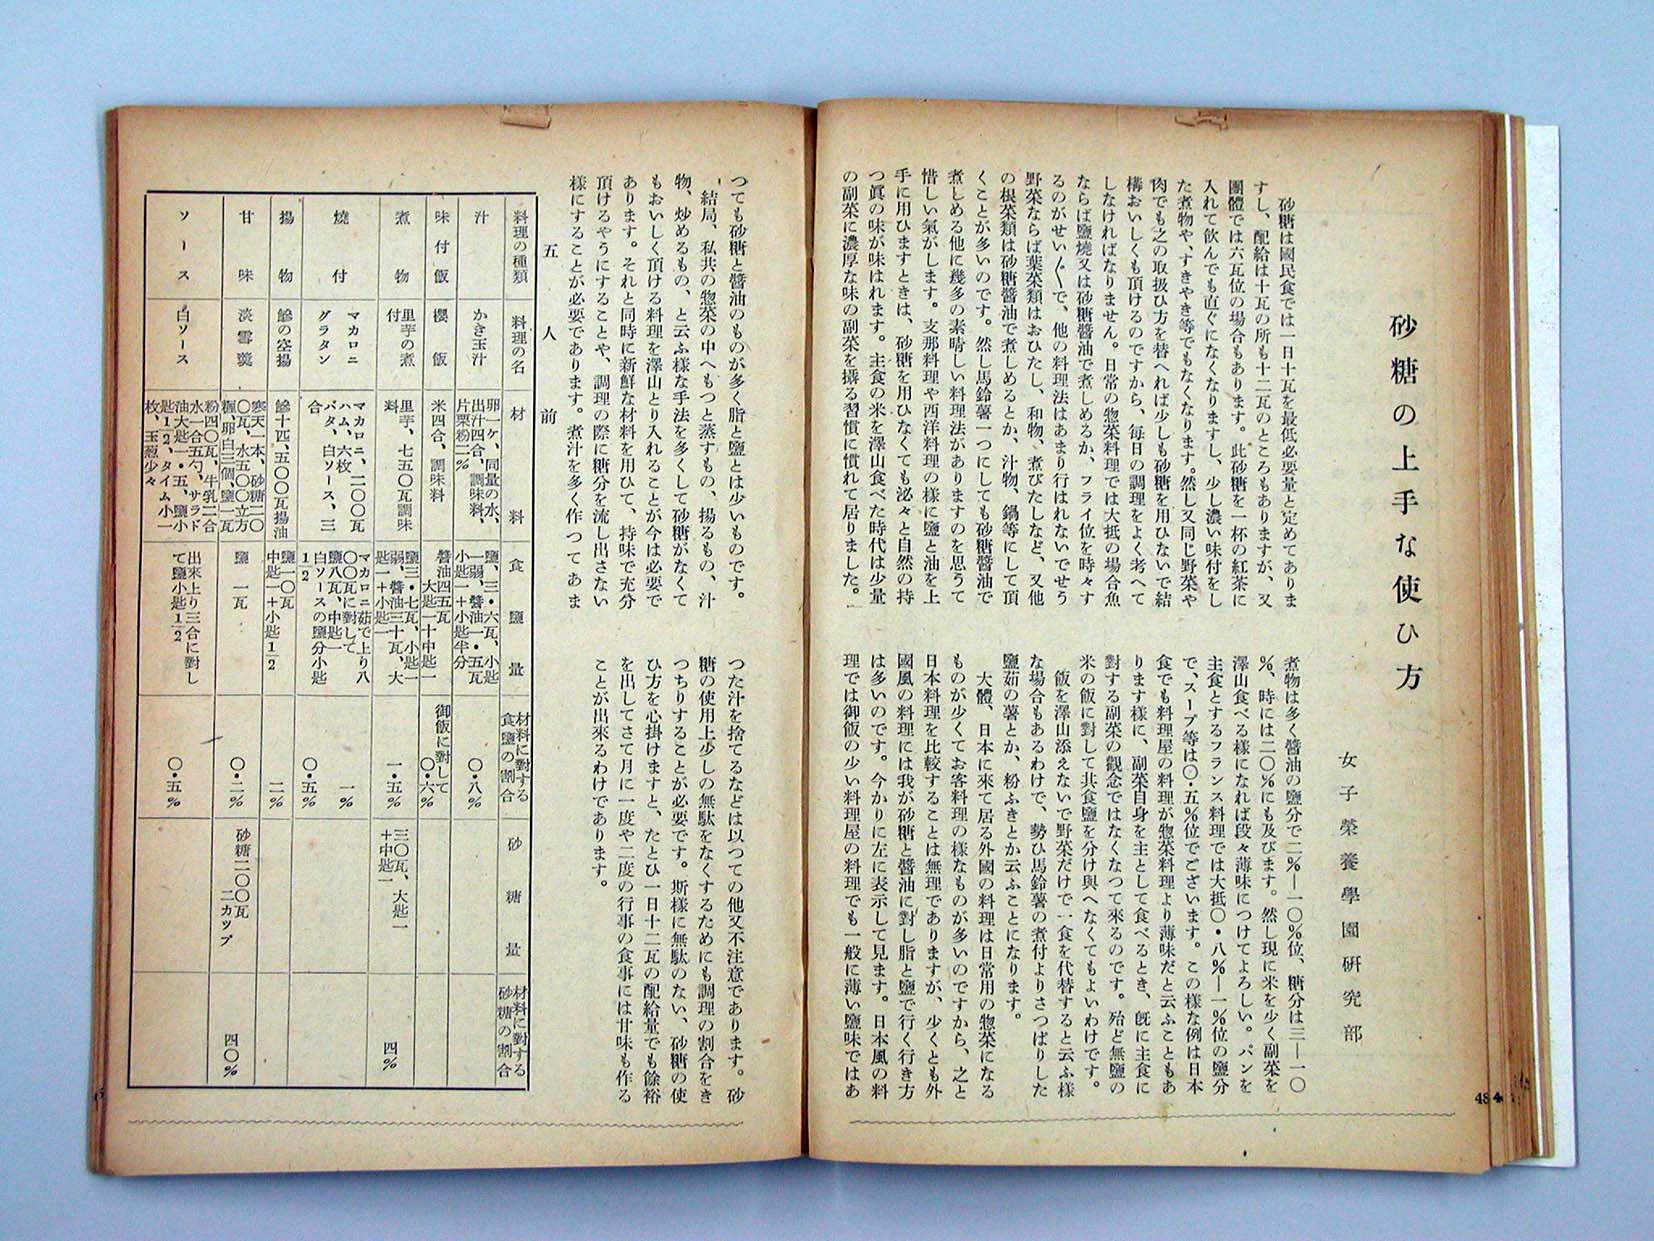 砂糖の上手な使ひ方
女子榮養學園研究部
砂糖は國民食では一日十瓦を最低必要量と定めてありま
すし、配給は十瓦の所も十二瓦のところもありますが、又
團體では六瓦位の場合もあります。此砂糖を一杯の紅茶に
入れて飲んでも直ぐになくなりますし、少し濃い味付をし
た煮物や、すきやき等でもなくなります。然し又同じ野菜や
肉でも之の取扱ひ方を替へれば少しも砂糖を用ひないで結
構おいしくも頂けるのですから、毎日の調理をよく考へて
しなければなりません。日常の惣菜料理では大抵の場合魚
ならば鹽燒又は砂糖醬油で煮しめるか、フライ位を時々す
るのがせい〴〵で、他の料理法はあまり行はれないでせう
野菜ならば葉菜類はおひたし、和物、煮びたしなど、又他
の根菜類は砂糖醬油で煮しめるとか、汁物、鍋等にして頂
くことが多いのです。然し馬鈴薯一つにしても砂糖醬油で
煮しめる他に幾多の素晴しい料理法がありますのを思うて
惜しい氣がします。支那料理や西洋料理の樣に鹽と油を上
手に用ひますときは、砂糖を用ひなくても泌々と自然の持
つ眞の味が味はれます。主食の米を澤山食べた時代は少量
の副菜に濃厚な味の副菜を攝る習慣に慣れて居りました。
煮物は多く醬油の鹽分で二%—一〇%位、糖分は三—一〇
%、時には二〇%にも及びます。然し現に米を少く副菜を
澤山食べる樣になれば段々薄味につけてよろしい。パンを
主食とするフランス料理では大抵〇・八%—一%位の鹽分
で、スープ等は〇・五%位でございます。この樣な例は日本
食でも料理屋の料理が惣菜料理より薄味だと云ふこともあ
ります樣に、副菜自身を主として食べるとき、既に主食に
對する副菜の觀念ではなくなつて來るのです。殆ど無鹽の
米の飯に對して共食鹽を分け與へなくてもよいわけです。
飯を澤山添えないで野菜だけで一食を代替すると云ふ樣
な場合もあるわけで、勢ひ馬鈴薯の煮付よりさつぱりした
鹽茹の薯とか、粉ふきとか云ふことになります。
大體、日本に來て居る外國の料理は日常用の惣菜になる
ものが少くてお客料理の樣なものが多いのですから、之と
日本料理を比較することは無理でありますが、少くとも外
國風の料理には我が砂糖と醬油に對し脂と鹽で行く行き方
は多いのです。今かりに左に表示して見ます。日本風の料
理では御飯の少い料理屋の料理でも一般に薄い鹽味ではあ
48
つても砂糖と醬油のものが多く脂と鹽とは少いものです。
結局、私共の惣菜の中へもつと蒸すもの、揚るもの、汁
物、炒めるもの、と云ふ樣な手法を多くして砂糖がなくて
もおいしく頂ける料理を澤山とり入れることが今は必要で
あります。それと同時に新鮮な材料を用ひて、持味で充分
頂けるやうにすることや、調理の際に糖分を流し出さない
樣にすることが必要であります。煮汁を多く作つてあま
つた汁を捨てるなどは以つての他又不注意であります。砂
糖の使用上少しの無駄をなくするためにも調理の割合をき
つちりすることが必要です。斯樣に無駄のない、砂糖の使
ひ方を心掛けますと、たとひ一日十二瓦の配給量でも餘裕
を出してさて月に一度や二度の行事の食事には甘味も作る
ことが出來るわけであります。
五人前
料理の種類
料理の名
材料
食鹽量
材料に對する
食鹽の割合
砂糖量
材料に對する
砂糖の割合
汁
かき玉汁
卵一ヶ、同量の水、
出汁四合、調味料、
片栗粉二%
鹽三・六瓦、小匙
一弱、醬油一・五瓦
小匙一+小匙半分
〇・八%
味付飯
櫻飯
米四合、調味料
醬油四五瓦
大匙一十中匙一
御飯に對して
〇・六%
煮物
里芋の煮
付
里芋、七五〇瓦調味
料
鹽三・七瓦、小匙一
弱、醬油三十瓦、大
匙一+小匙一
一・五%
三〇瓦、大匙一
+中匙一
四%
燒付
マカロニ
グラタン
マカロニ、二〇〇瓦
ハム、六枚
バタ、白ソース、三
合
マカロニ茹で上り八
〇〇瓦に對して
鹽八瓦、中匙一
白ソースの鹽分小匙
1/2
一%
〇・五%
揚物
鯵の空揚
鯵十匹、五〇〇瓦揚油
鹽一〇瓦
中匙一+小匙1/2
二%
甘味
淡雪羹
寒天一本、砂糖二〇
〇瓦、水五〇〇立方
糎、卵白三個、鹽一瓦
鹽一瓦
〇・二%
砂糖二〇〇瓦
二カップ
四〇%
ソース
白ソース
粉四〇瓦、牛乳二合
水一合五勺、サラド
油大匙一・五、鹽小
匙1/2、タイム小一
枚、玉葱少々
出來上り三合に對し
て鹽小匙1/2
〇・五%